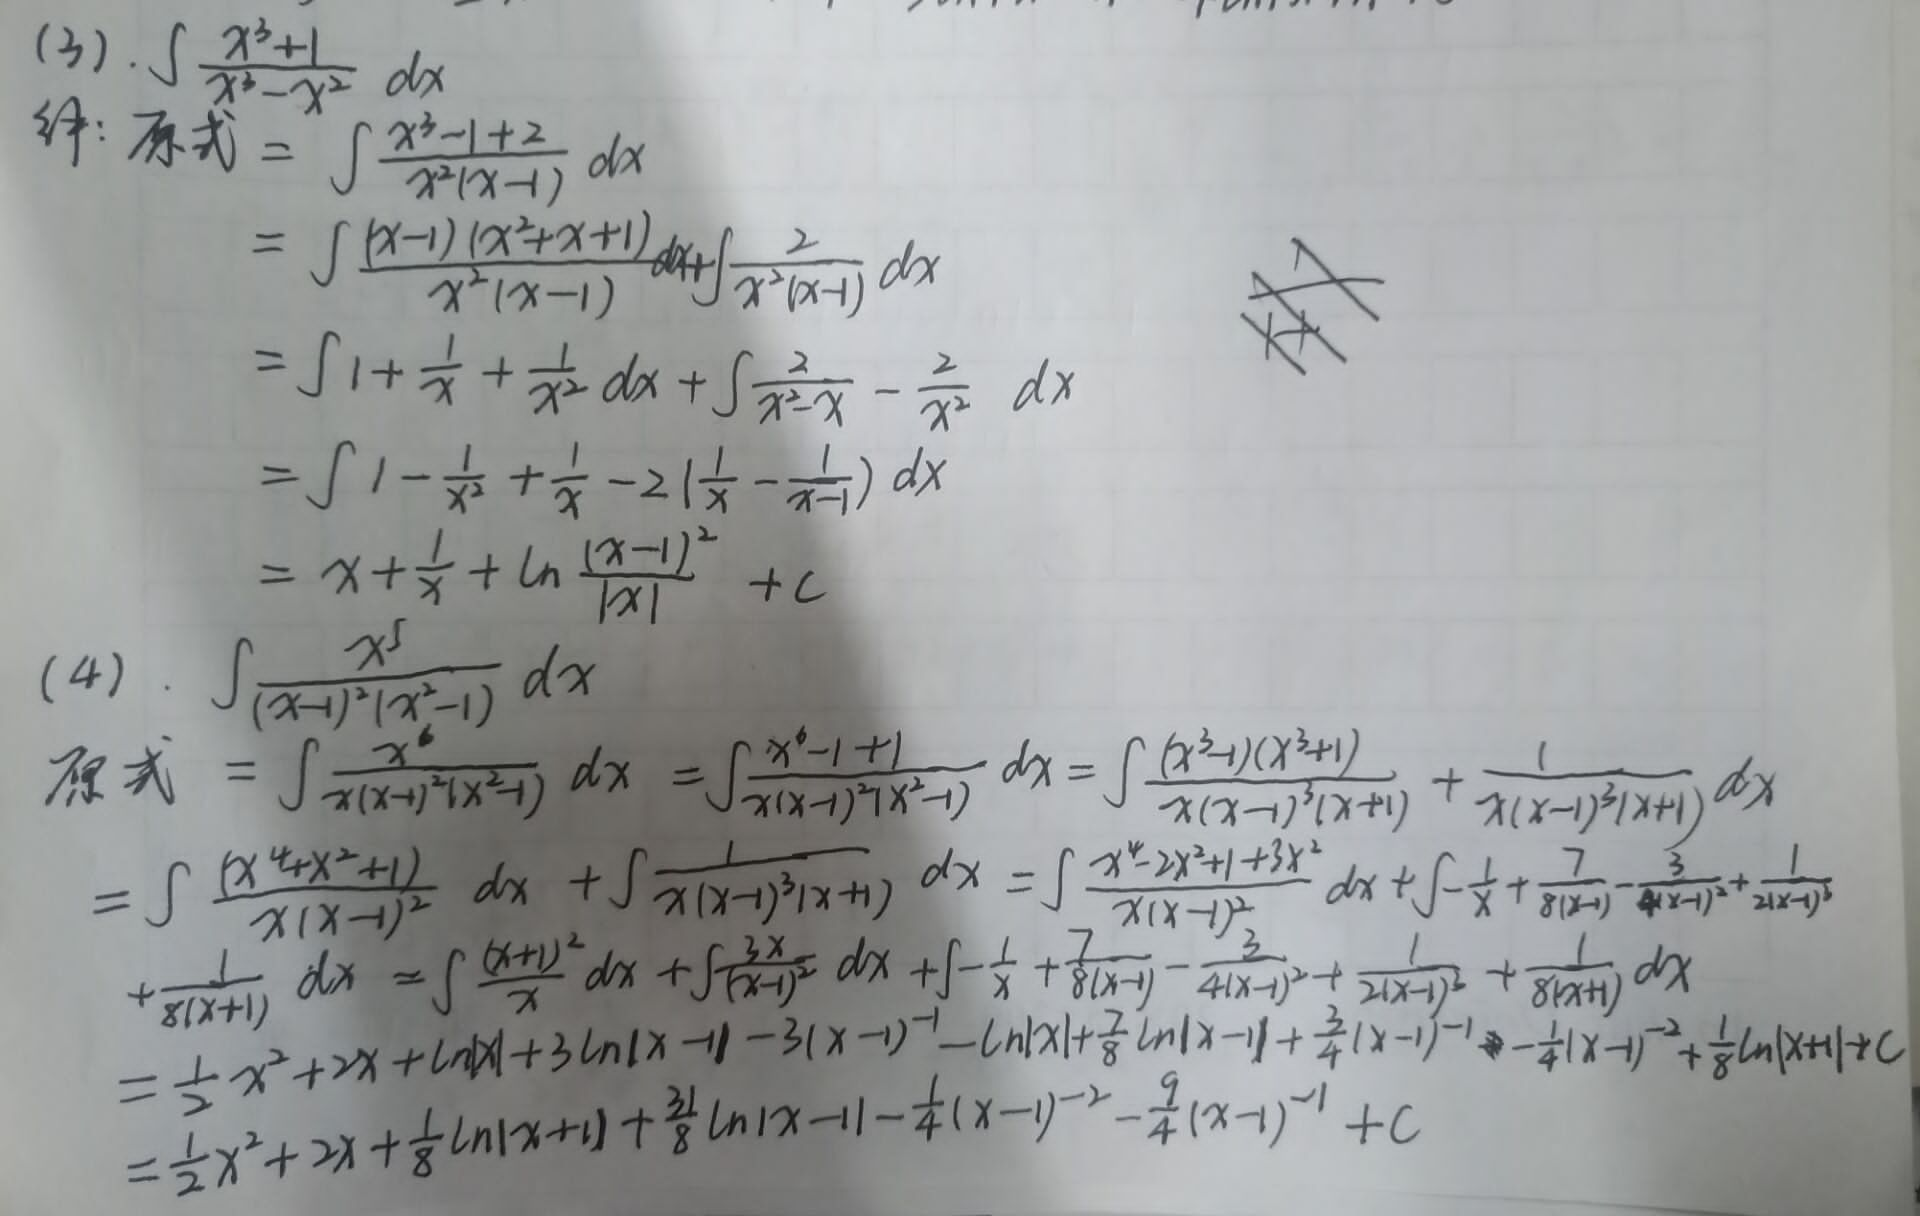 (3). ∫ (x³+1)/(x³-x²) dx
解: 原式 = ∫ (x³-1+2)/(x²(x-1)) dx
= ∫ ((x-1)(x²+x+1))/(x²(x-1)) dx + ∫ 2/(x²(x-1)) dx
= ∫ 1 + 1/x + 1/x² dx + ∫ 2/(x²-x) - 2/x² dx
= ∫ 1 - 1/x² + 1/x - 2(1/x - 1/(x-1)) dx
= x + 1/x + ln (x-1)²/|x| + C
(4). ∫ x⁵/((x-1)²(x²-1)) dx
原式 = ∫ x⁶/(x(x-1)²(x²-1)) dx = ∫ (x⁶-1+1)/(x(x-1)²(x²-1)) dx = ∫ ((x³-1)(x³+1))/(x(x-1)³(x+1)) + 1/(x(x-1)³(x+1)) dx
= ∫ (x⁴+x²+1)/(x(x-1)²) dx + ∫ 1/(x(x-1)³(x+1)) dx = ∫ (x⁴-2x²+1+3x²)/(x(x-1)²) dx + ∫ -1/x + 7/(8(x-1)) - 3/(4(x-1)²) + 1/(2(x-1)³)
+ 1/(8(x+1)) dx = ∫ (x+1)²/x dx + ∫ 3x/(x-1)² dx + ∫ -1/x + 7/(8(x-1)) - 3/(4(x-1)²) + 1/(2(x-1)³) + 1/(8(x+1)) dx
= 1/2 x² + 2x + ln|x| + 3ln|x-1| - 3(x-1)⁻¹ - ln|x| + 7/8 ln|x-1| + 3/4 (x-1)⁻¹ - 1/4 (x-1)⁻² + 1/8 ln|x+1| + C
= 1/2 x² + 2x + 1/8 ln|x+1| + 31/8 ln|x-1| - 1/4 (x-1)⁻² - 9/4 (x-1)⁻¹ + C